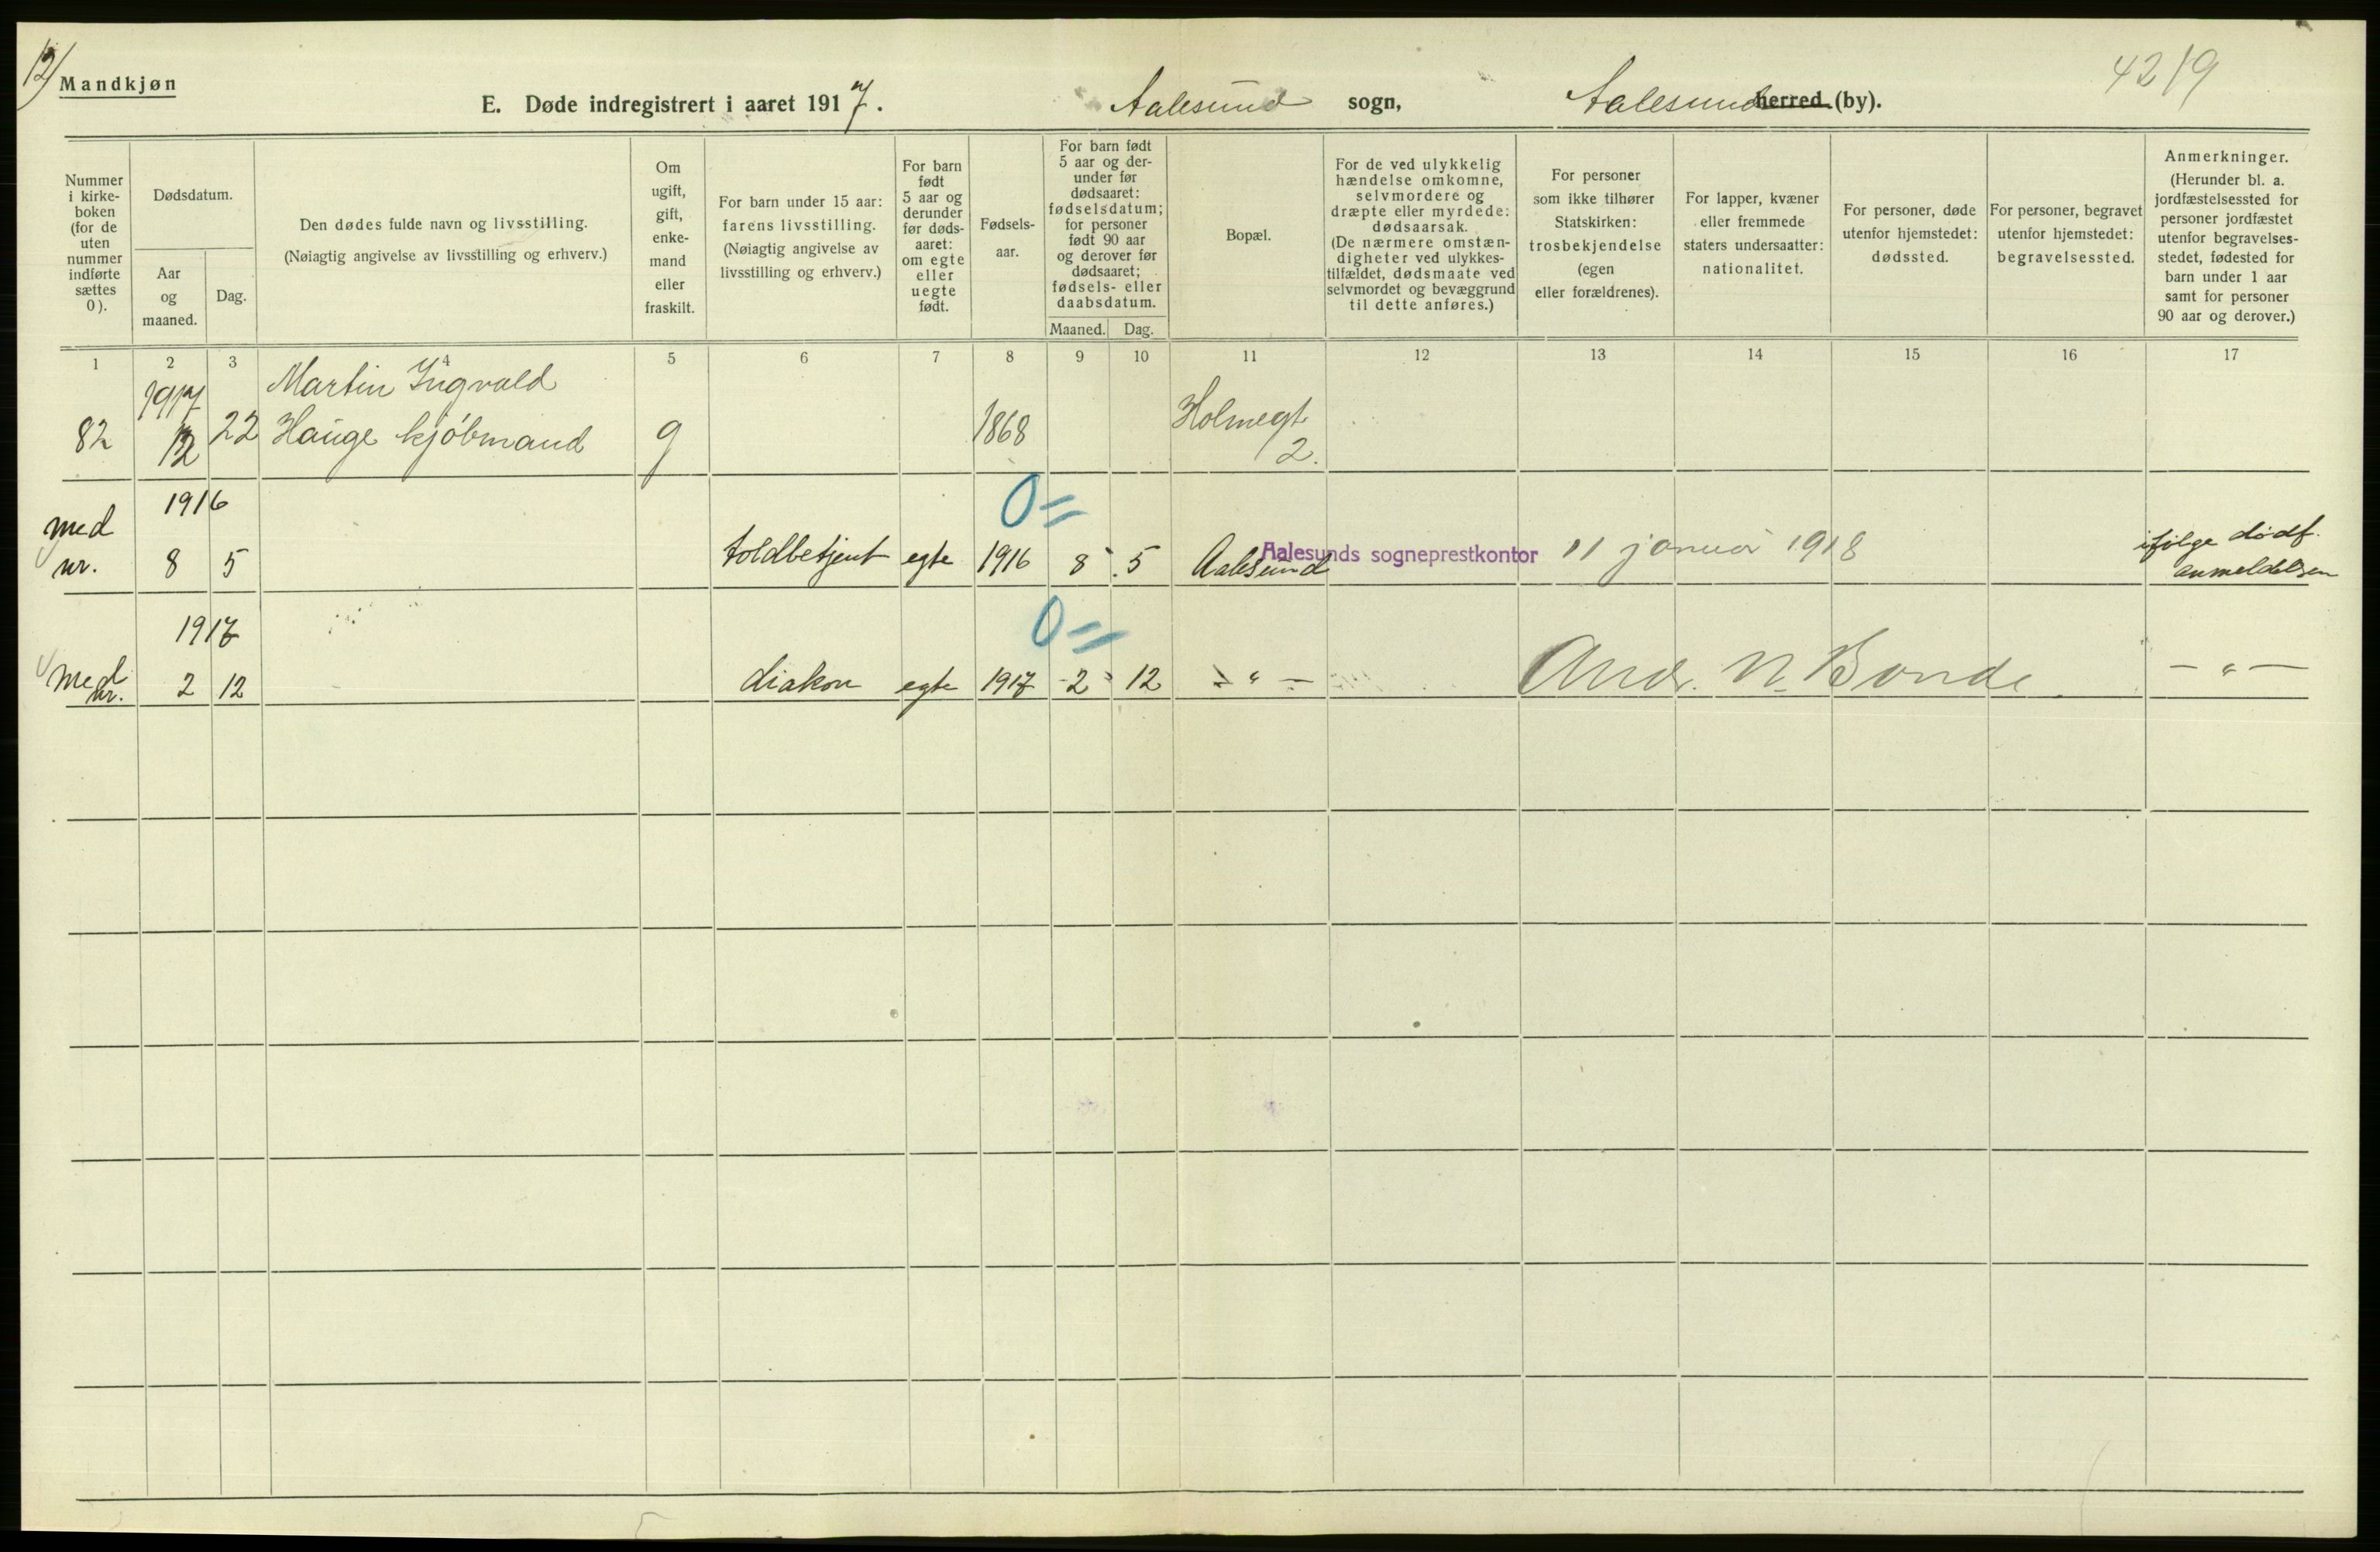 12/
Mandkjøn
4219
E. Døde indregistrert i aaret 1917. Aalesund sogn, Aalesund herred (by).
Nummer
i kirke-
boken
(for de
uten
nummer
indførte
sættes
0).
Dødsdatum.
Aar
og
maaned.
Dag.
Den dødes fulde navn og livsstilling.
(Nøiagtig angivelse av livsstilling og erhverv.)
Om
ugift,
gift,
enke-
mand
eller
fraskilt.
For barn under 15 aar:
farens livsstilling.
(Nøiagtig angivelse av
livsstilling og erhverv.)
For barn
født
5 aar og
derunder
før døds-
aaret:
om egte
eller
uegte
født.
Fødsels-
aar.
For barn født
5 aar og der-
under før
dødsaaret:
fødselsdatum;
for personer
født 90 aar
og derover før
dødsaaret;
fødsels- eller
daabsdatum.
Maaned. Dag.
Bopæl.
For de ved ulykkelig
hændelse omkomne,
selvmordere og
dræpte eller myrdede:
dødsaarsak.
(De nærmere omstæn-
digheter ved ulykkes-
tilfældet, dødsmaate ved
selvmordet og bevæggrund
til dette anføres.)
For personer
som ikke tilhører
Statskirken:
trosbekjendelse
(egen
eller forældrenes).
For lapper, kvæner
eller fremmede
staters undersaatter:
nationalitet.
For personer, døde
utenfor hjemstedet:
dødssted.
For personer, begravet
utenfor hjemstedet:
begravelsessted.
Anmerkninger.
(Herunder bl. a.
jordfæstelsessted for
personer jordfæstet
utenfor begravelses-
stedet, fødested for
barn under 1 aar
samt for personer
90 aar og derover.)
1 2 3 4 5 6 7 8 9 10 11 12 13 14 15 16 17
1917 Martin Ingvald Holmegt
82 12 22 Hauge kjøbmand g 1868 2.
1916 0=
med ifølge dødf.
nr. 8 5 toldbetjent egte 1916 8 5 Aalesund Aalesunds sogneprestkontor 11 januar 1918 anmeldelsen
1917 0=
med
nr. 2 12 diakon egte 1917 2 12 - " - Andr. N. Bonde - " -